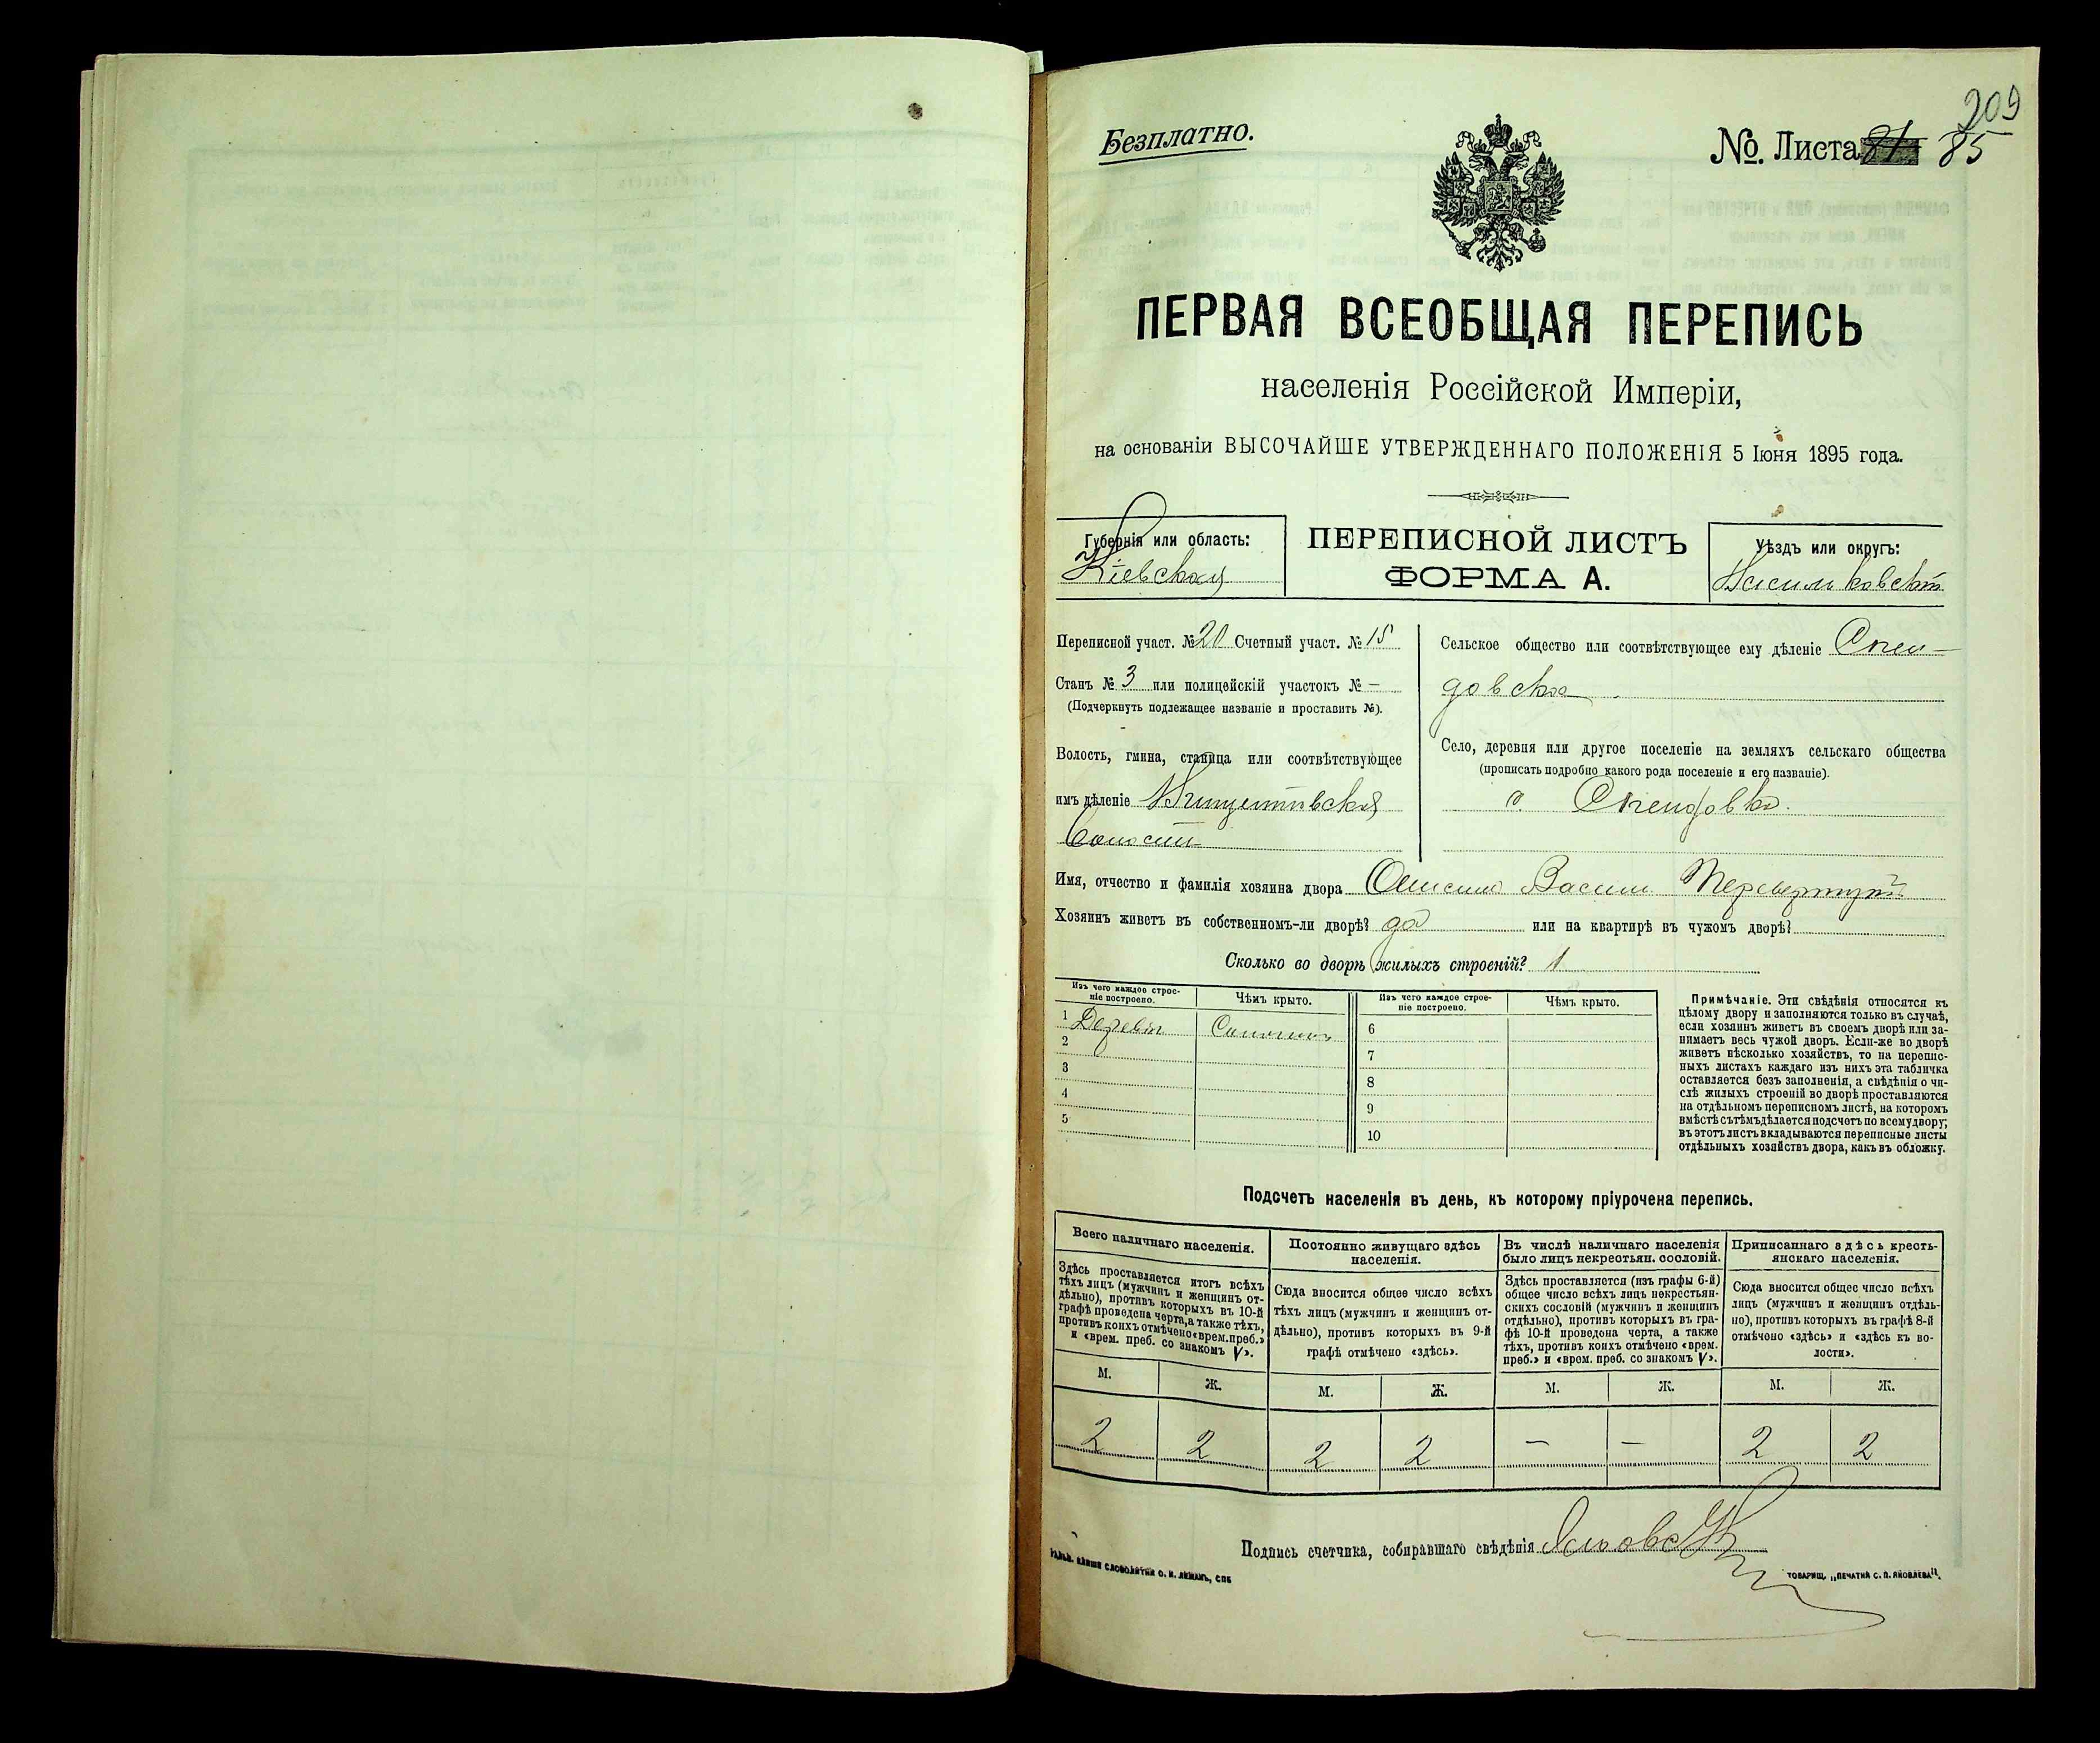 209
Безплатно.
№. Листа 81 85
ПЕРВАЯ ВСЕОБЩАЯ ПЕРЕПИСЬ
населенія Россійской Имперіи,
на основаніи ВЫСОЧАЙШЕ УТВЕРЖДЕННАГО ПОЛОЖЕНІЯ 5 Іюня 1895 года.
Губернія или область:
Кіевская
ПЕРЕПИСНОЙ ЛИСТЪ
ФОРМА А.
Уѣздъ или округъ:
Переписной участ. № 20 Счетный участ. № 15
Станъ № 3 или полицейскій участокъ № —
(Подчеркнуть подлежащее названіе и проставить №).
Волость, гмина, станица или соотвѣтствующее
имъ дѣленіе
Сельское общество или соотвѣтствующее ему дѣленіе
Село, деревня или другое поселеніе на земляхъ сельскаго общества
(прописать подробно какого рода поселеніе и его названіе).
Имя, отчество и фамилія хозяина двора
Хозяинъ живетъ въ собственномъ-ли дворѣ? да или на квартирѣ въ чужомъ дворѣ?
Сколько во дворѣ жилыхъ строеній? 1
Изъ чего каждое строе-
ніе построено.
Чѣмъ крыто.
Изъ чего каждое строе-
ніе построено.
Чѣмъ крыто.
1
6
2
7
3
8
4
9
5
10
Примѣчаніе. Эти свѣдѣнія относятся къ
цѣлому двору и заполняются только въ случаѣ,
если хозяинъ живетъ въ своемъ дворѣ или за-
нимаетъ весь чужой дворъ. Если-же во дворѣ
живетъ нѣсколько хозяйствъ, то на перепис-
ныхъ листахъ каждаго изъ нихъ эта табличка
оставляется безъ заполненія, а свѣдѣнія о чи-
слѣ жилыхъ строеній во дворѣ проставляются
на отдѣльномъ переписномъ листѣ, на которомъ
вмѣстѣ съ тѣмъ дѣлается подсчетъ по всему двору;
въ этотъ листъ вкладываются переписные листы
отдѣльныхъ хозяйствъ двора, какъ въ обложку.
Подсчетъ населенія въ день, къ которому пріурочена перепись.
Всего наличнаго населенія.
Здѣсь проставляется итогъ всѣхъ
тѣхъ лицъ (мужчинъ и женщинъ от-
дѣльно), противъ которыхъ въ 10-й
графѣ проведена черта, а также тѣхъ,
противъ коихъ отмѣчено «врем. преб.»
и «врем. преб. со знакомъ V».
Постоянно живущаго здѣсь
населенія.
Сюда вносится общее число всѣхъ
тѣхъ лицъ (мужчинъ и женщинъ от-
дѣльно), противъ которыхъ въ 9-й
графѣ отмѣчено «здѣсь».
Въ числѣ наличнаго населенія
было лицъ некрестьян. сословій.
Здѣсь проставляется (изъ графы 6-й)
общее число всѣхъ лицъ некрестьян-
скихъ сословій (мужчинъ и женщинъ
отдѣльно), противъ которыхъ въ гра-
фѣ 10-й проведена черта, а также
тѣхъ, противъ коихъ отмѣчено «врем.
преб.» и «врем. преб. со знакомъ V».
Приписаннаго здѣсь кресть-
янскаго населенія.
Сюда вносится общее число всѣхъ
лицъ (мужчинъ и женщинъ отдѣль-
но), противъ которыхъ въ графѣ 8-й
отмѣчено «здѣсь» и «здѣсь къ во-
лости».
М. Ж. М. Ж. М. Ж. М. Ж.
2 2 2 2 — — 2 2
Подпись счетчика, собиравшаго свѣдѣнія
СЛОВОЛИТНИ О. И. ЛЕМАНЪ, СПБ
ТОВАРИЩ. „ПЕЧАТНЯ С. П. ЯКОВЛЕВА".